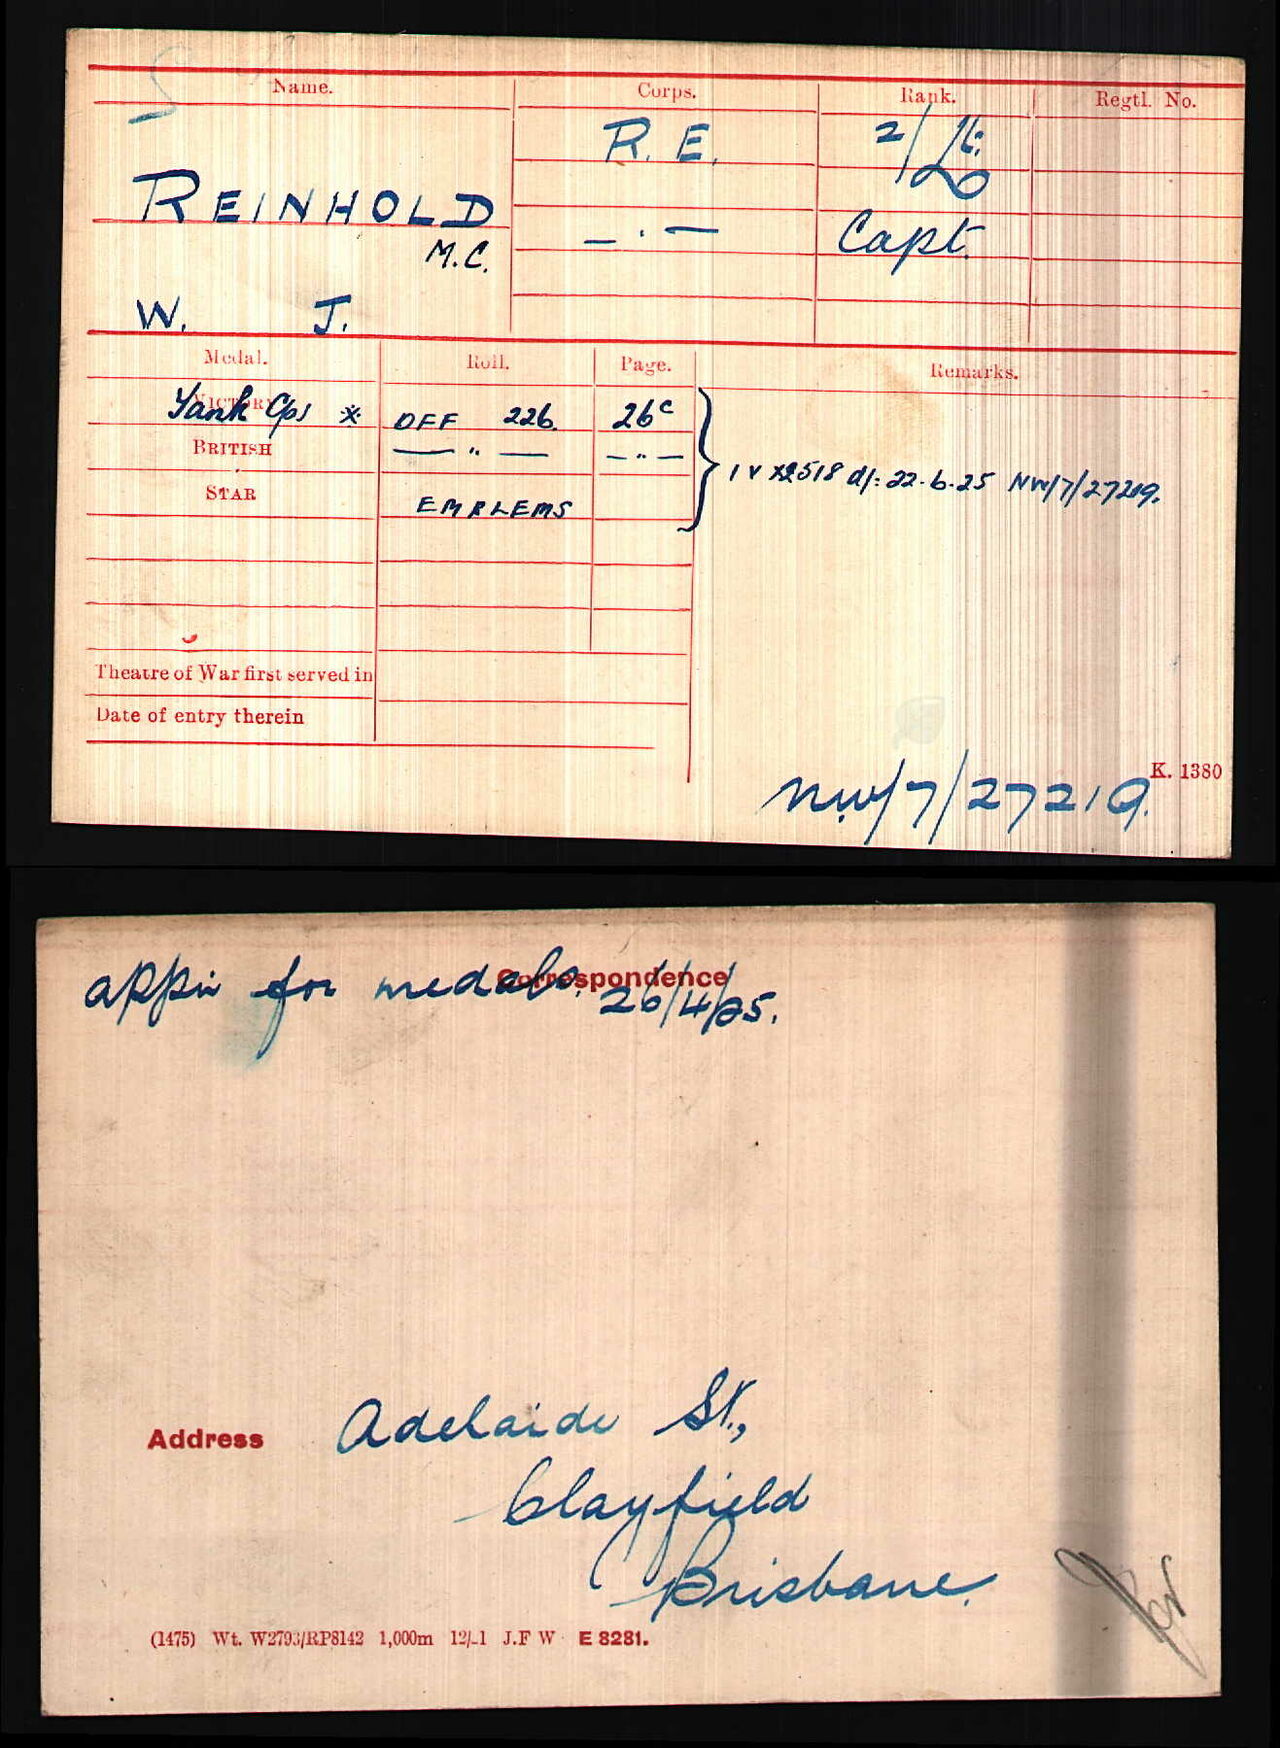 Name. Corps. Rank. Regtl. No.
R. E. 2/Lt.
REINHOLD
M.C. —·— Capt.
W. J.
Medal. Roll. Page. Remarks.
VICTORY Tank Cps * OFF 226. 26c
BRITISH — " — — " —
STAR EMBLEMS
1 V X2518 d/: 22.6.25 NW/7/27219.
Theatre of War first served in
Date of entry therein
K. 1380
NW/7/27219.
Correspondence
appn for medals. 26/4/25.
Address Adelaide St.,
Clayfield
Brisbane.
(1475) Wt. W2793/RP8142 1,000m J.F W E 8281.